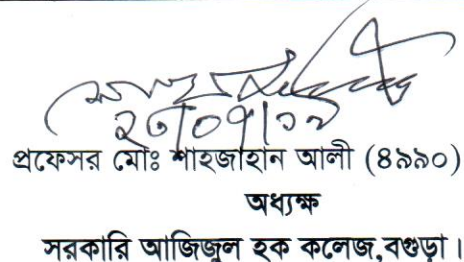 প্রফেসর মোঃ শাহজাহান আলী (৪৯৯০)
অধ্যক্ষ
সরকারি আজিজুল হক কলেজ,বগুড়া।